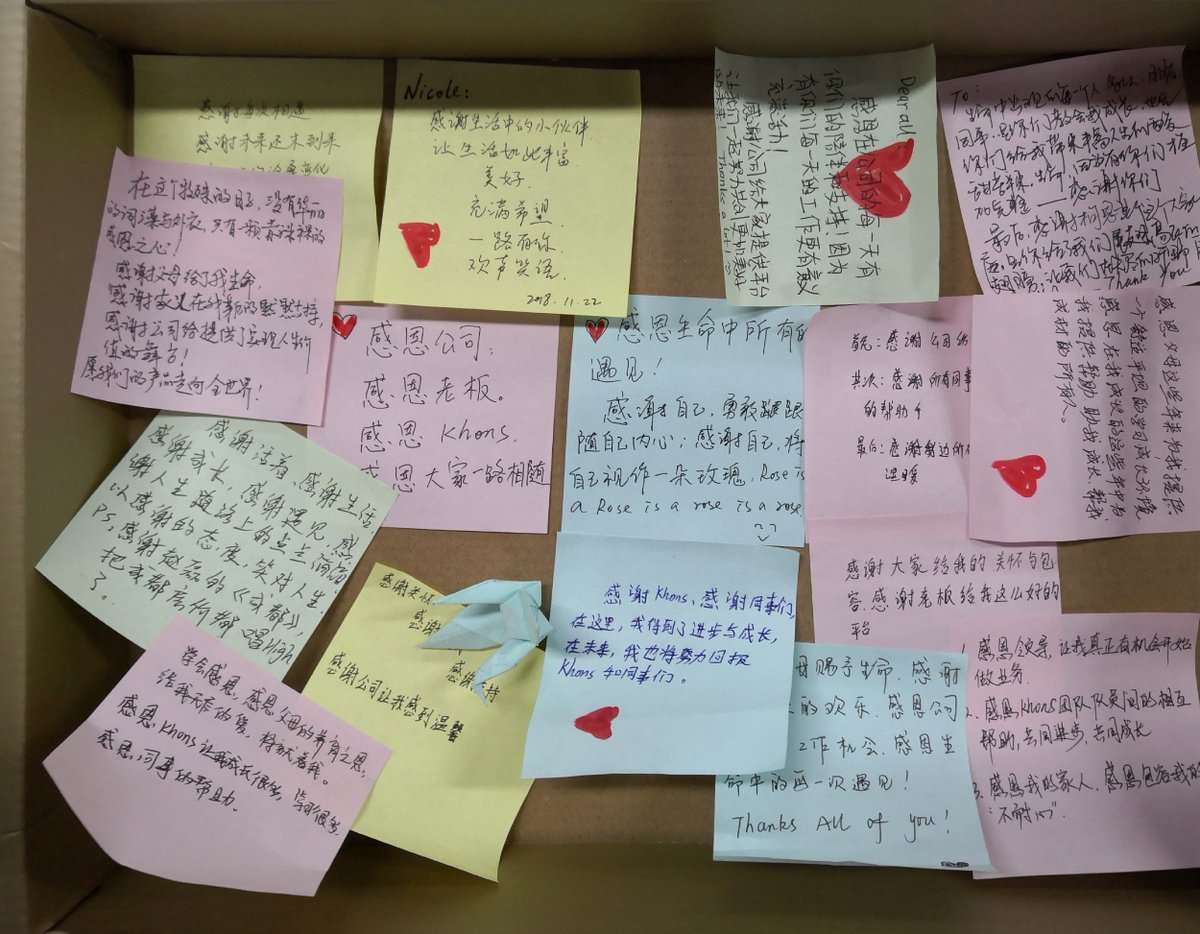 感谢每次相遇
感谢未来还未到来
Nicole:
感谢生活中的小伙伴
让生活如此丰富
美好.
充满希望
一路有你
欢声笑语.
2018.11.22
Dear all,
感恩在公司的每一天有
你们的陪伴和支持!因为
有你们每一天的工作更有意义
充满动力!
感谢公司给大家提供平台
让我们一起努力
Thanks a lot!
To:
生命中出现的每个人
同事:是你们
你们给我带来
加完整 — 感谢你们
最后,感谢
Thank you!
在这个特殊的日子,没有华丽
的词藻与外衣,只有一颗赤裸裸的
感恩之心!
感谢父母给了我生命,
感谢家人在我背后的默默支持,
感谢公司给提供了实现人生价
值的舞台!
愿我们的产品走向全世界!
感恩公司:
感恩老板。
感恩 Khons.
感恩大家一路相随
感恩生命中所有的
遇见!
感谢自己,勇敢跟
随自己内心;感谢自己,将
自己视作一朵玫瑰,Rose is
a Rose is a rose is a rose
首先:感谢公司
其次:感谢所有同事
的帮助
最后:感谢身边所有
温暖
感恩父母这些年来为我提供
一个稳定平和的学习成长环境
感恩在我成长的这些年中为
我提供帮助,助我成长,帮我
成功的所有人。
感谢活着,感谢生活
感谢成长,感谢遇见,感
谢人生道路上的点点滴滴
以感谢的态度,笑对人生.
PS:感谢赵磊的《成都》,
把成都房价都唱High
了。
感谢
感谢公司让我感到温馨
感谢Khons,感谢同事们,
在这里,我得到了进步与成长,
在未来,我也将努力回报
Khons和同事们。
感谢大家给我的关怀与包
容.感谢老板给我这么好的
平台
母赐予生命,感谢
的欢乐,感恩公司
工作机会,感恩生
命中的再一次遇见!
Thanks All of you!
感恩领导,让我真正有机会开始
做业务.
感恩Khons团队队员间的相互
帮助,共同进步,共同成长
感恩我的家人,感恩包容我的
“不耐心”.
学会感恩,感恩父母的养育之恩,
给我无私的爱,
感恩Khons让我成长很多,学习很多,
感恩同事的帮助。